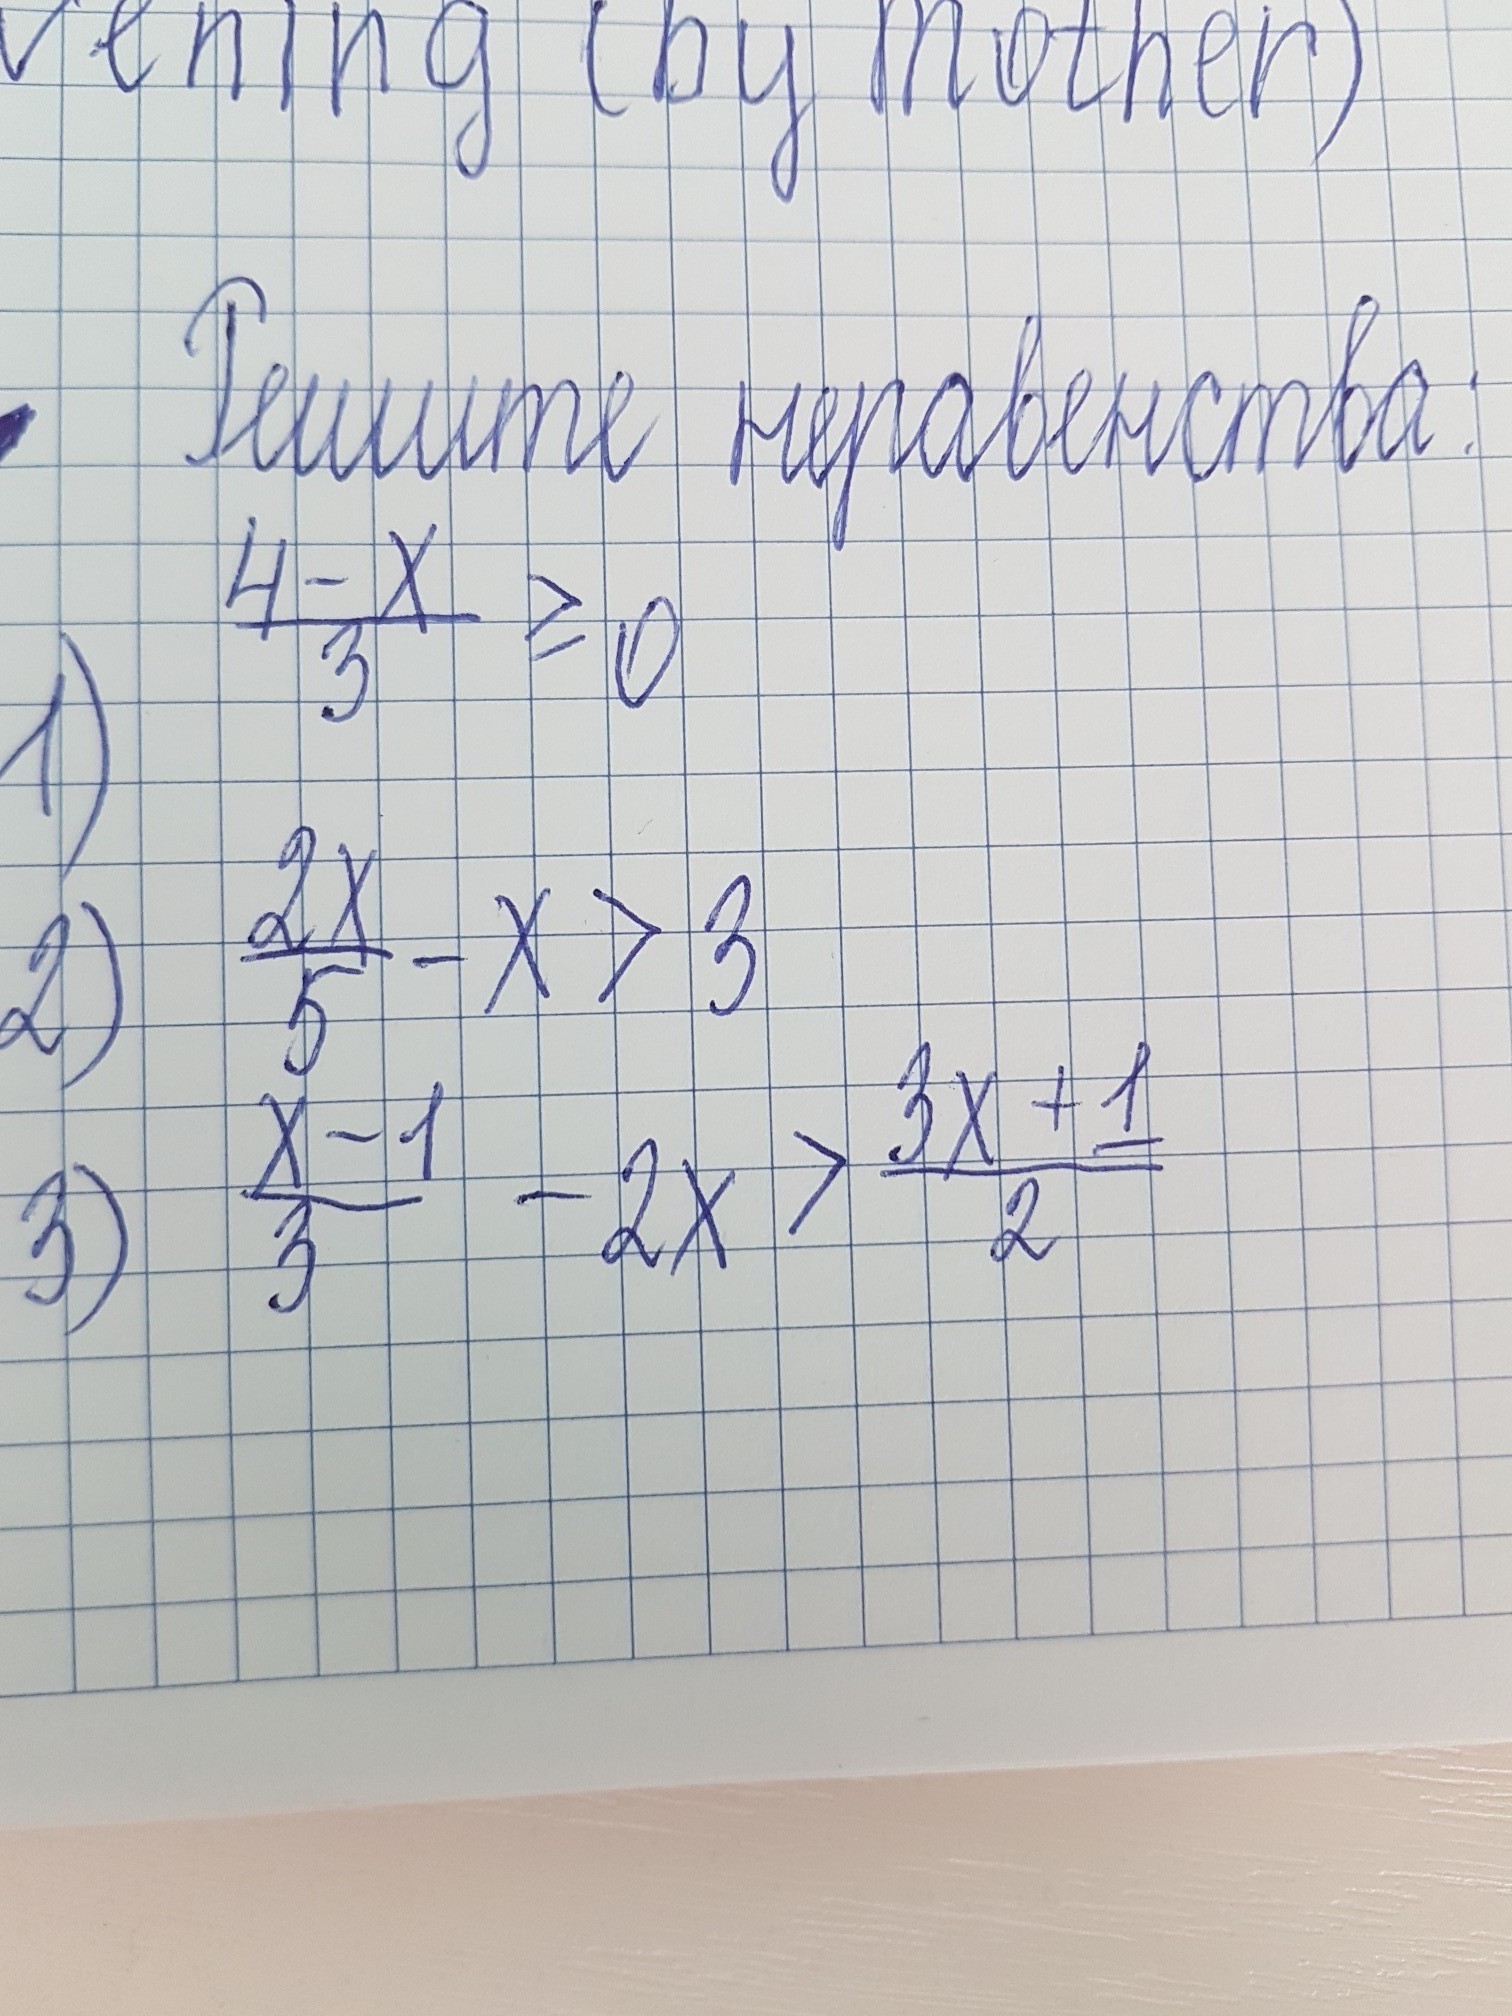 (by mother)
Решите неравенства:
1) \frac{4-x}{3} ≥ 0
2) \frac{2x}{5} - x > 3
3) \frac{x-1}{3} - 2x > \frac{3x+1}{2}